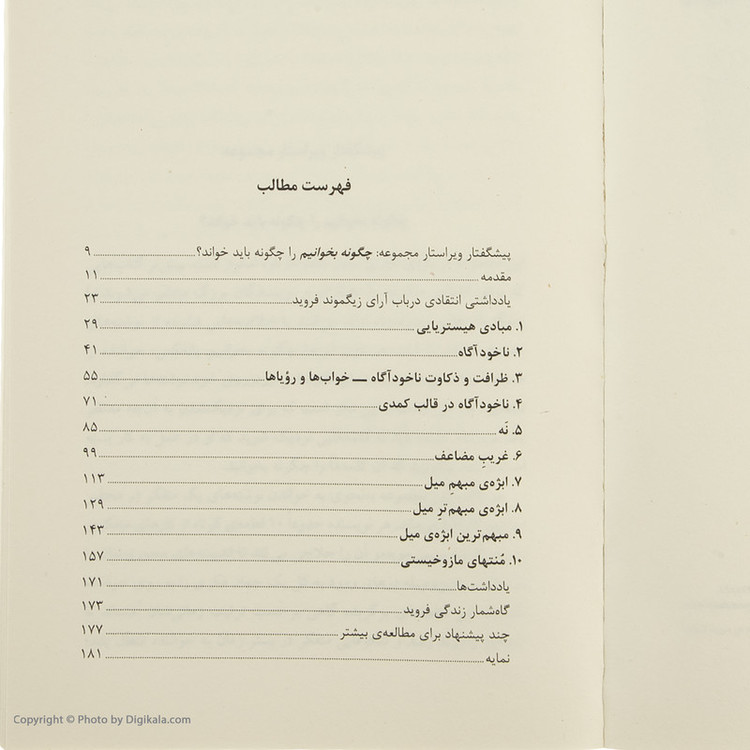 فهرست مطالب
پیشگفتار ویراستار مجموعه: چگونه بخوانیم را چگونه باید خواند؟ ۹
مقدمه ۱۱
یادداشتی انتقادی درباب آرای زیگموند فروید ۲۳
۱. مبادی هیستریایی ۲۹
۲. ناخودآگاه ۴۱
۳. ظرافت و ذکاوت ناخودآگاه — خواب‌ها و رؤیاها ۵۵
۴. ناخودآگاه در قالب کمدی ۷۱
۵. نَه ۸۵
۶. غریبِ مضاعف ۹۹
۷. ابژه‌ی مبهمِ میل ۱۱۳
۸. ابژه‌ی مبهم‌ترِ میل ۱۲۹
۹. مبهم‌ترین ابژه‌ی میل ۱۴۳
۱۰. مُنتهای مازوخیستی ۱۵۷
یادداشت‌ها ۱۷۱
گاه‌شمار زندگی فروید ۱۷۳
چند پیشنهاد برای مطالعه‌ی بیشتر ۱۷۷
نمایه ۱۸۱
Copyright © Photo by Digikala.com